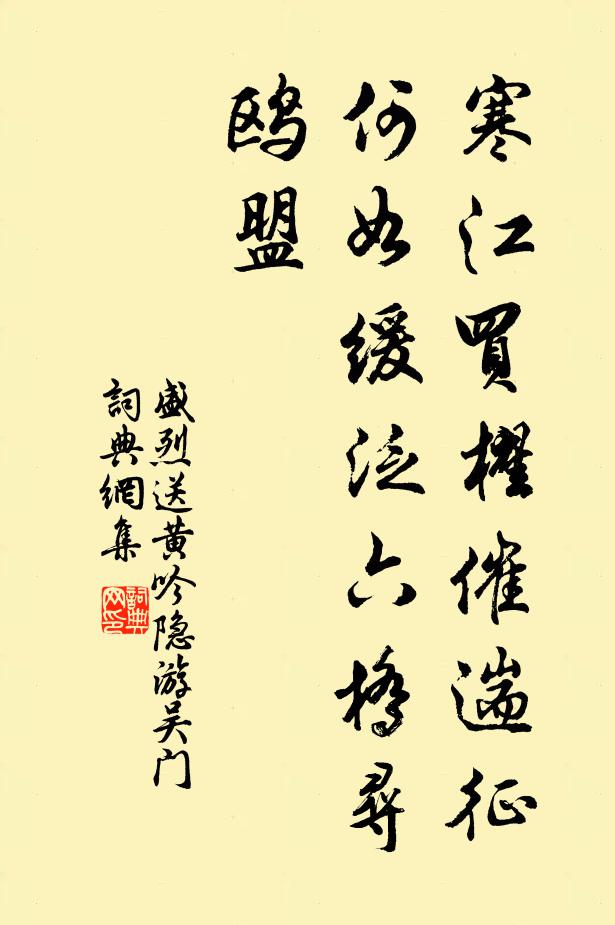 寒江買櫂催遄征
何如緩泛六橋尋
鸥盟
盛烈送黄吟隐游吴门
詞典網集
詞典
网印